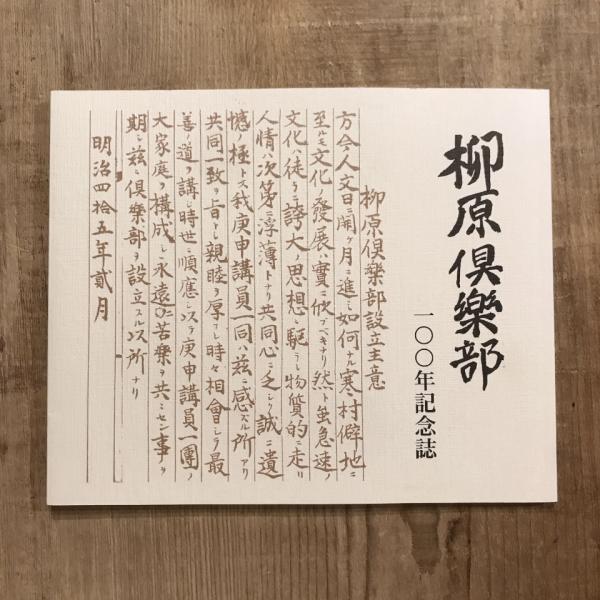 柳原倶樂部
一〇〇年記念誌
柳原倶樂部設立主意
方今人文日ニ開ケ月ニ進ミ如何ナル寒村僻地ニ
至ルモ文化ノ發展ハ實ニ欣ブベキナリ然ト虽急速ノ
文化ハ徒ラニ誇大ノ思想ニ駆ラレ物質的ニ走リ
人情ハ次第ニ浮薄トナリ共同心ニ乏シク誠ニ遺
憾ノ極トス我庚申講員一同ハ茲ニ感スル所アリ
共同一致ヲ旨トシ親睦ヲ厚フシ時々相會シテ最
善ノ道ヲ講シ時世ニ順應シ以テ庚申講員一團ノ
大家庭ヲ構成シ永遠ニ苦樂ヲ共ニセン事ヲ
期シ茲ニ倶樂部ヲ設立スル以所ナリ
明治四拾五年貳月